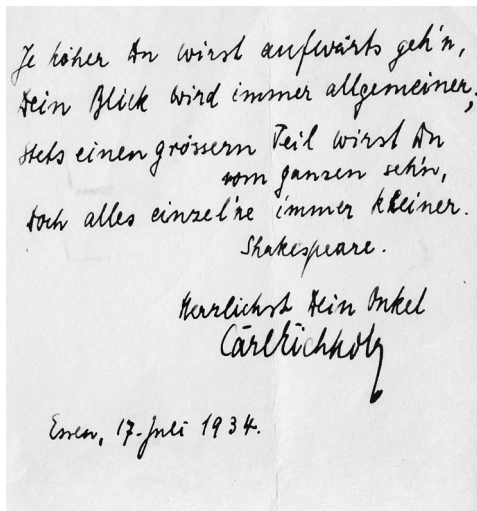 Je höher Du wirst aufwärts geh'n,
Dein Blick wird immer allgemeiner,
Stets einen grössern Teil wirst Du
vom ganzen seh'n,
Doch alles einzel'ne immer kleiner.
Shakespeare.
Herrlichst Dein Onkel
Carl Eichholz
Essen, 17. Juli 1934.